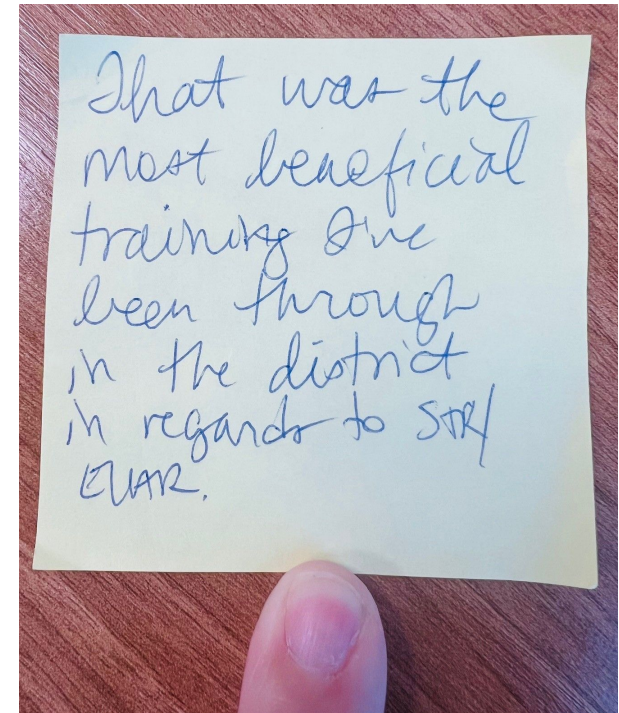 That was the
most beneficial
training I've
been through
in the district
in regards to STR/
EVAR.